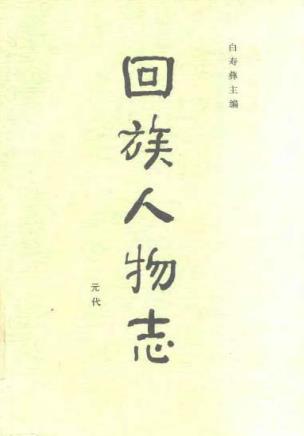 白寿彝主编
回族人物志
元代